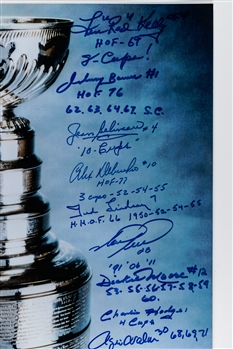 Red Kelly #4
HOF-69
8-Cups!
Johnny Bower #1
HOF 76
62, 63, 64, 67 S.C.
Jean Beliveau #4
"10-Cups"
Alex Delvecchio #10
HOF-77
3 cups-52-54-55
Ted Lindsay 7
H.H.O.F. 66 1950-52-54-55
20
'91 '06 '11
Dickie Moore #12
53-56-56-57-58-59
60.
Charlie Hodge 1
4 Cups
30 68,69,71